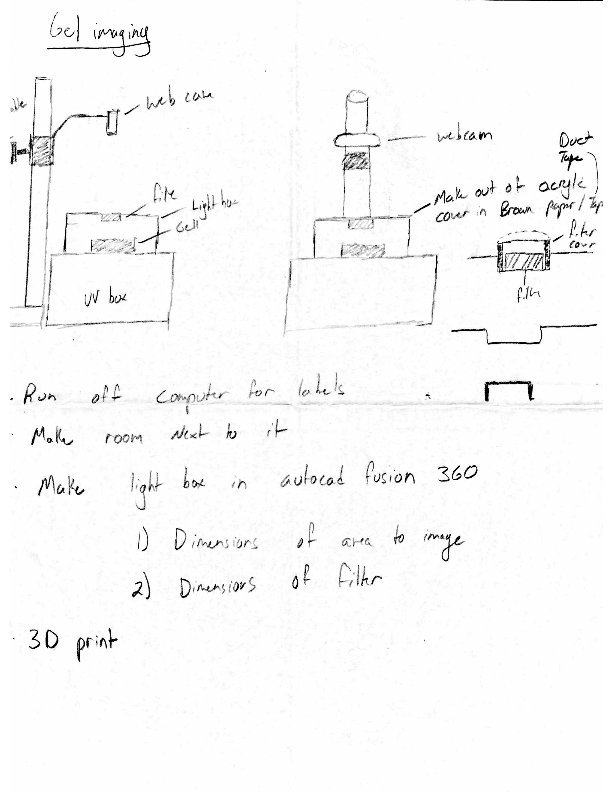 Gel imaging
web cam
webcam
Duct
Tape
Make out of acrylic
cover in Brown paper / Tape
filter
cover
Light box
Gell
UV box
· Run off computer for labels
· Make room next to it
· Make light box in autocad fusion 360
1) Dimensions of area to image
2) Dimensions of filter
· 3D print